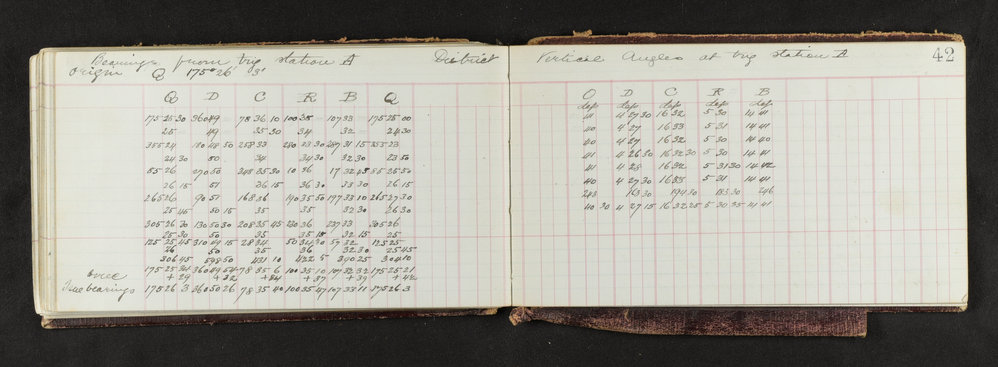 Bearings from trig station A District
Origin Q 175° 26' 3"
Q D C R B Q
175 25 30 360 49 78 36 10 100 35 107 33 175 25 00
25 49 35 30 34 32 24 30
355 24 180 48 50 258 33 280 33 30 287 31 15 355 23
24 30 50 34 34 30 32 30 23 50
85 26 270 50 348 35 30 10 36 17 32 45 85 25 50
26 15 51 36 15 36 30 33 30 26 15
265 26 90 51 168 36 190 35 50 197 33 10 265 27 30
25 45 50 15 35 35 32 30 26 30
305 26 30 130 50 30 208 35 45 230 36 237 33 305 26
25 30 50 35 35 15 32 15 25
125 25 45 310 49 15 28 34 50 34 30 57 32 125 25
26 50 35 36 32 30 25 45
306 45 598 50 431 10 422 5 390 25 304 10
175 25 34 360 49 54 78 35 6 100 35 10 107 32 32 175 25 21
+29 +32 +34 +37 +39 +42
True bearings 175 26 3 360 50 26 78 35 40 100 35 47 107 33 11 175 26 3
Vertical Angles at trig station A
42
Q D C R B
dep dep dep dep dep
41 4 27 30 16 32 5 30 14 41
40 4 27 16 33 5 31 14 41
40 4 27 16 32 5 30 14 40
41 4 26 30 16 32 30 5 30 14 41
41 4 28 16 32 5 31 30 14 42
40 4 27 30 16 33 5 31 14 41
243 163 30 194 30 183 30 246
40 30 4 27 15 16 32 25 5 30 35 14 41